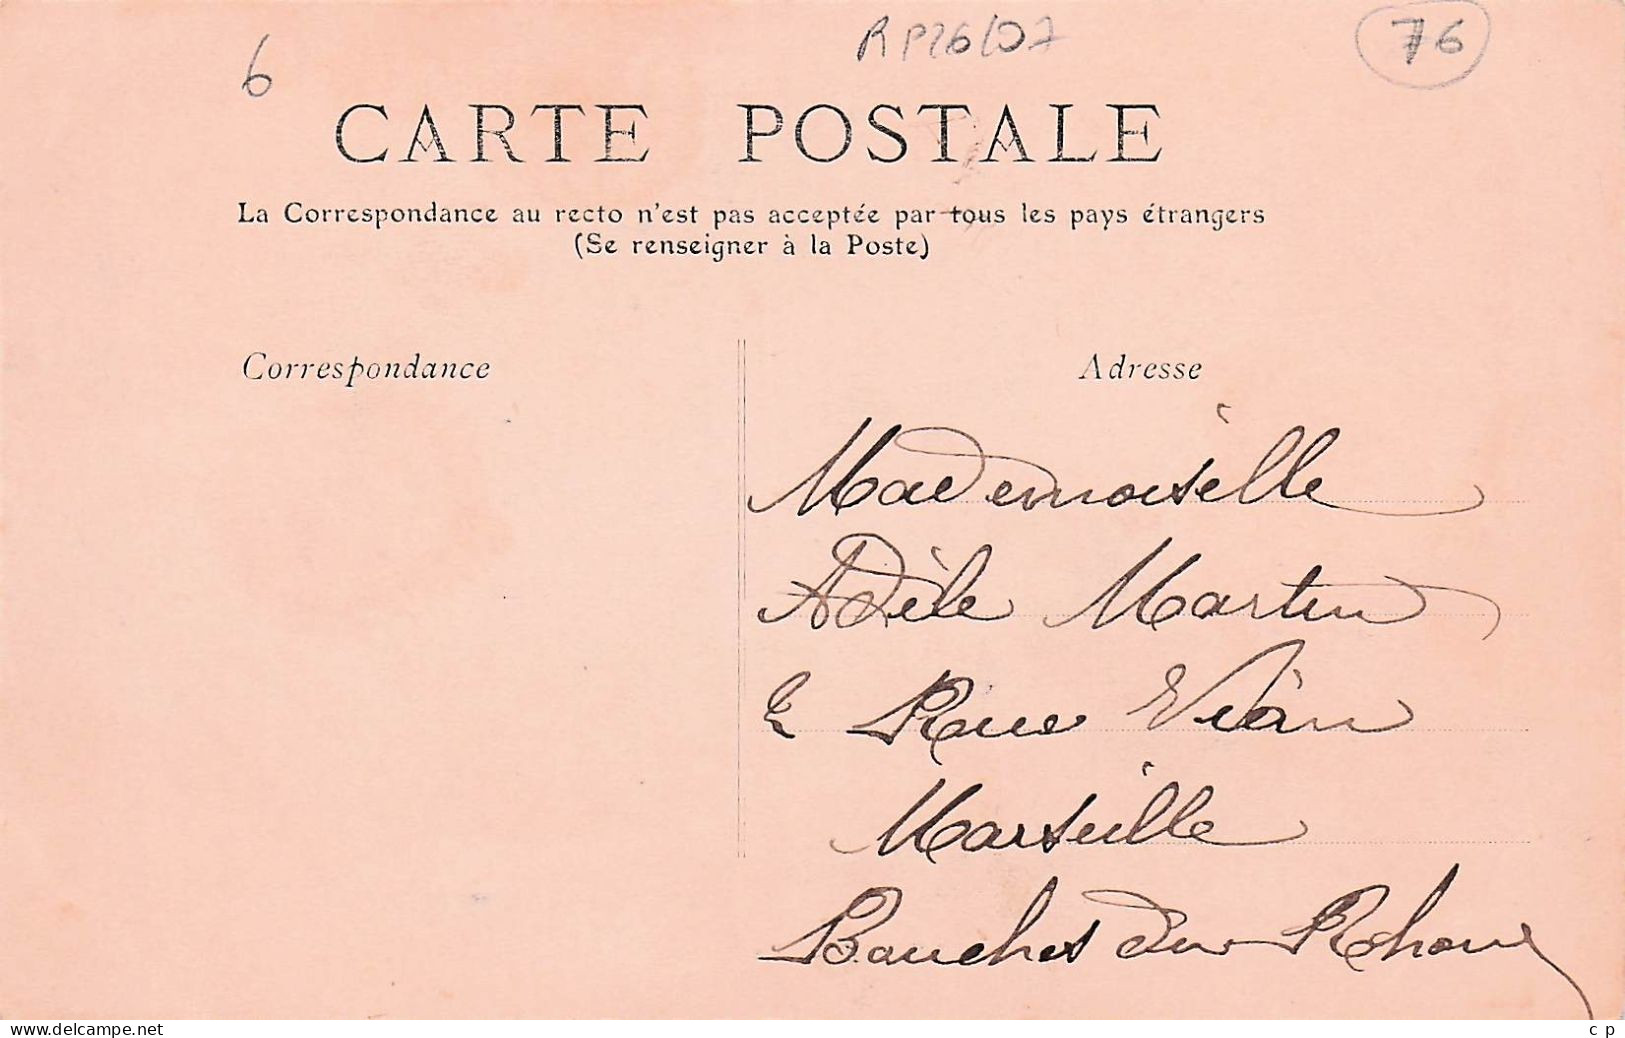 6
RP26/07
76
CARTE POSTALE
La Correspondance au recto n'est pas acceptée par tous les pays étrangers
(Se renseigner à la Poste)
Correspondance
Adresse
Mademoiselle
Adèle Martin
2 Rue Vian
Marseille
Bouches du Rhone
www.delcampe.net
c p